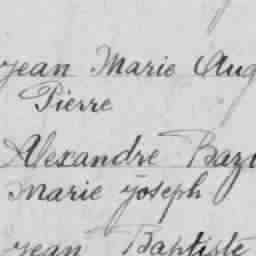 Jean Marie Aug
Pierre
Alexandre Baz
Marie Joseph
Jean Baptiste